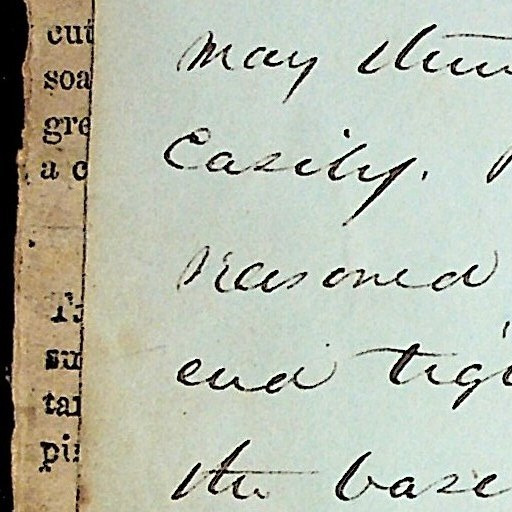 cut
soa
gre
a c
su
tar
pi
may
Easily.
reasoned
end tig
the base